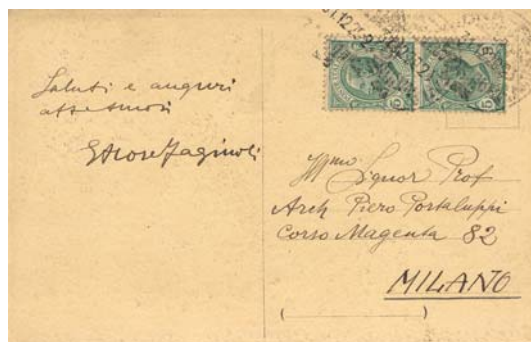 Saluti e auguri
affettuosi
Ettore Fagiuoli
Ill.mo Signor Prof
Arch Piero Portaluppi
Corso Magenta 82
MILANO
( )